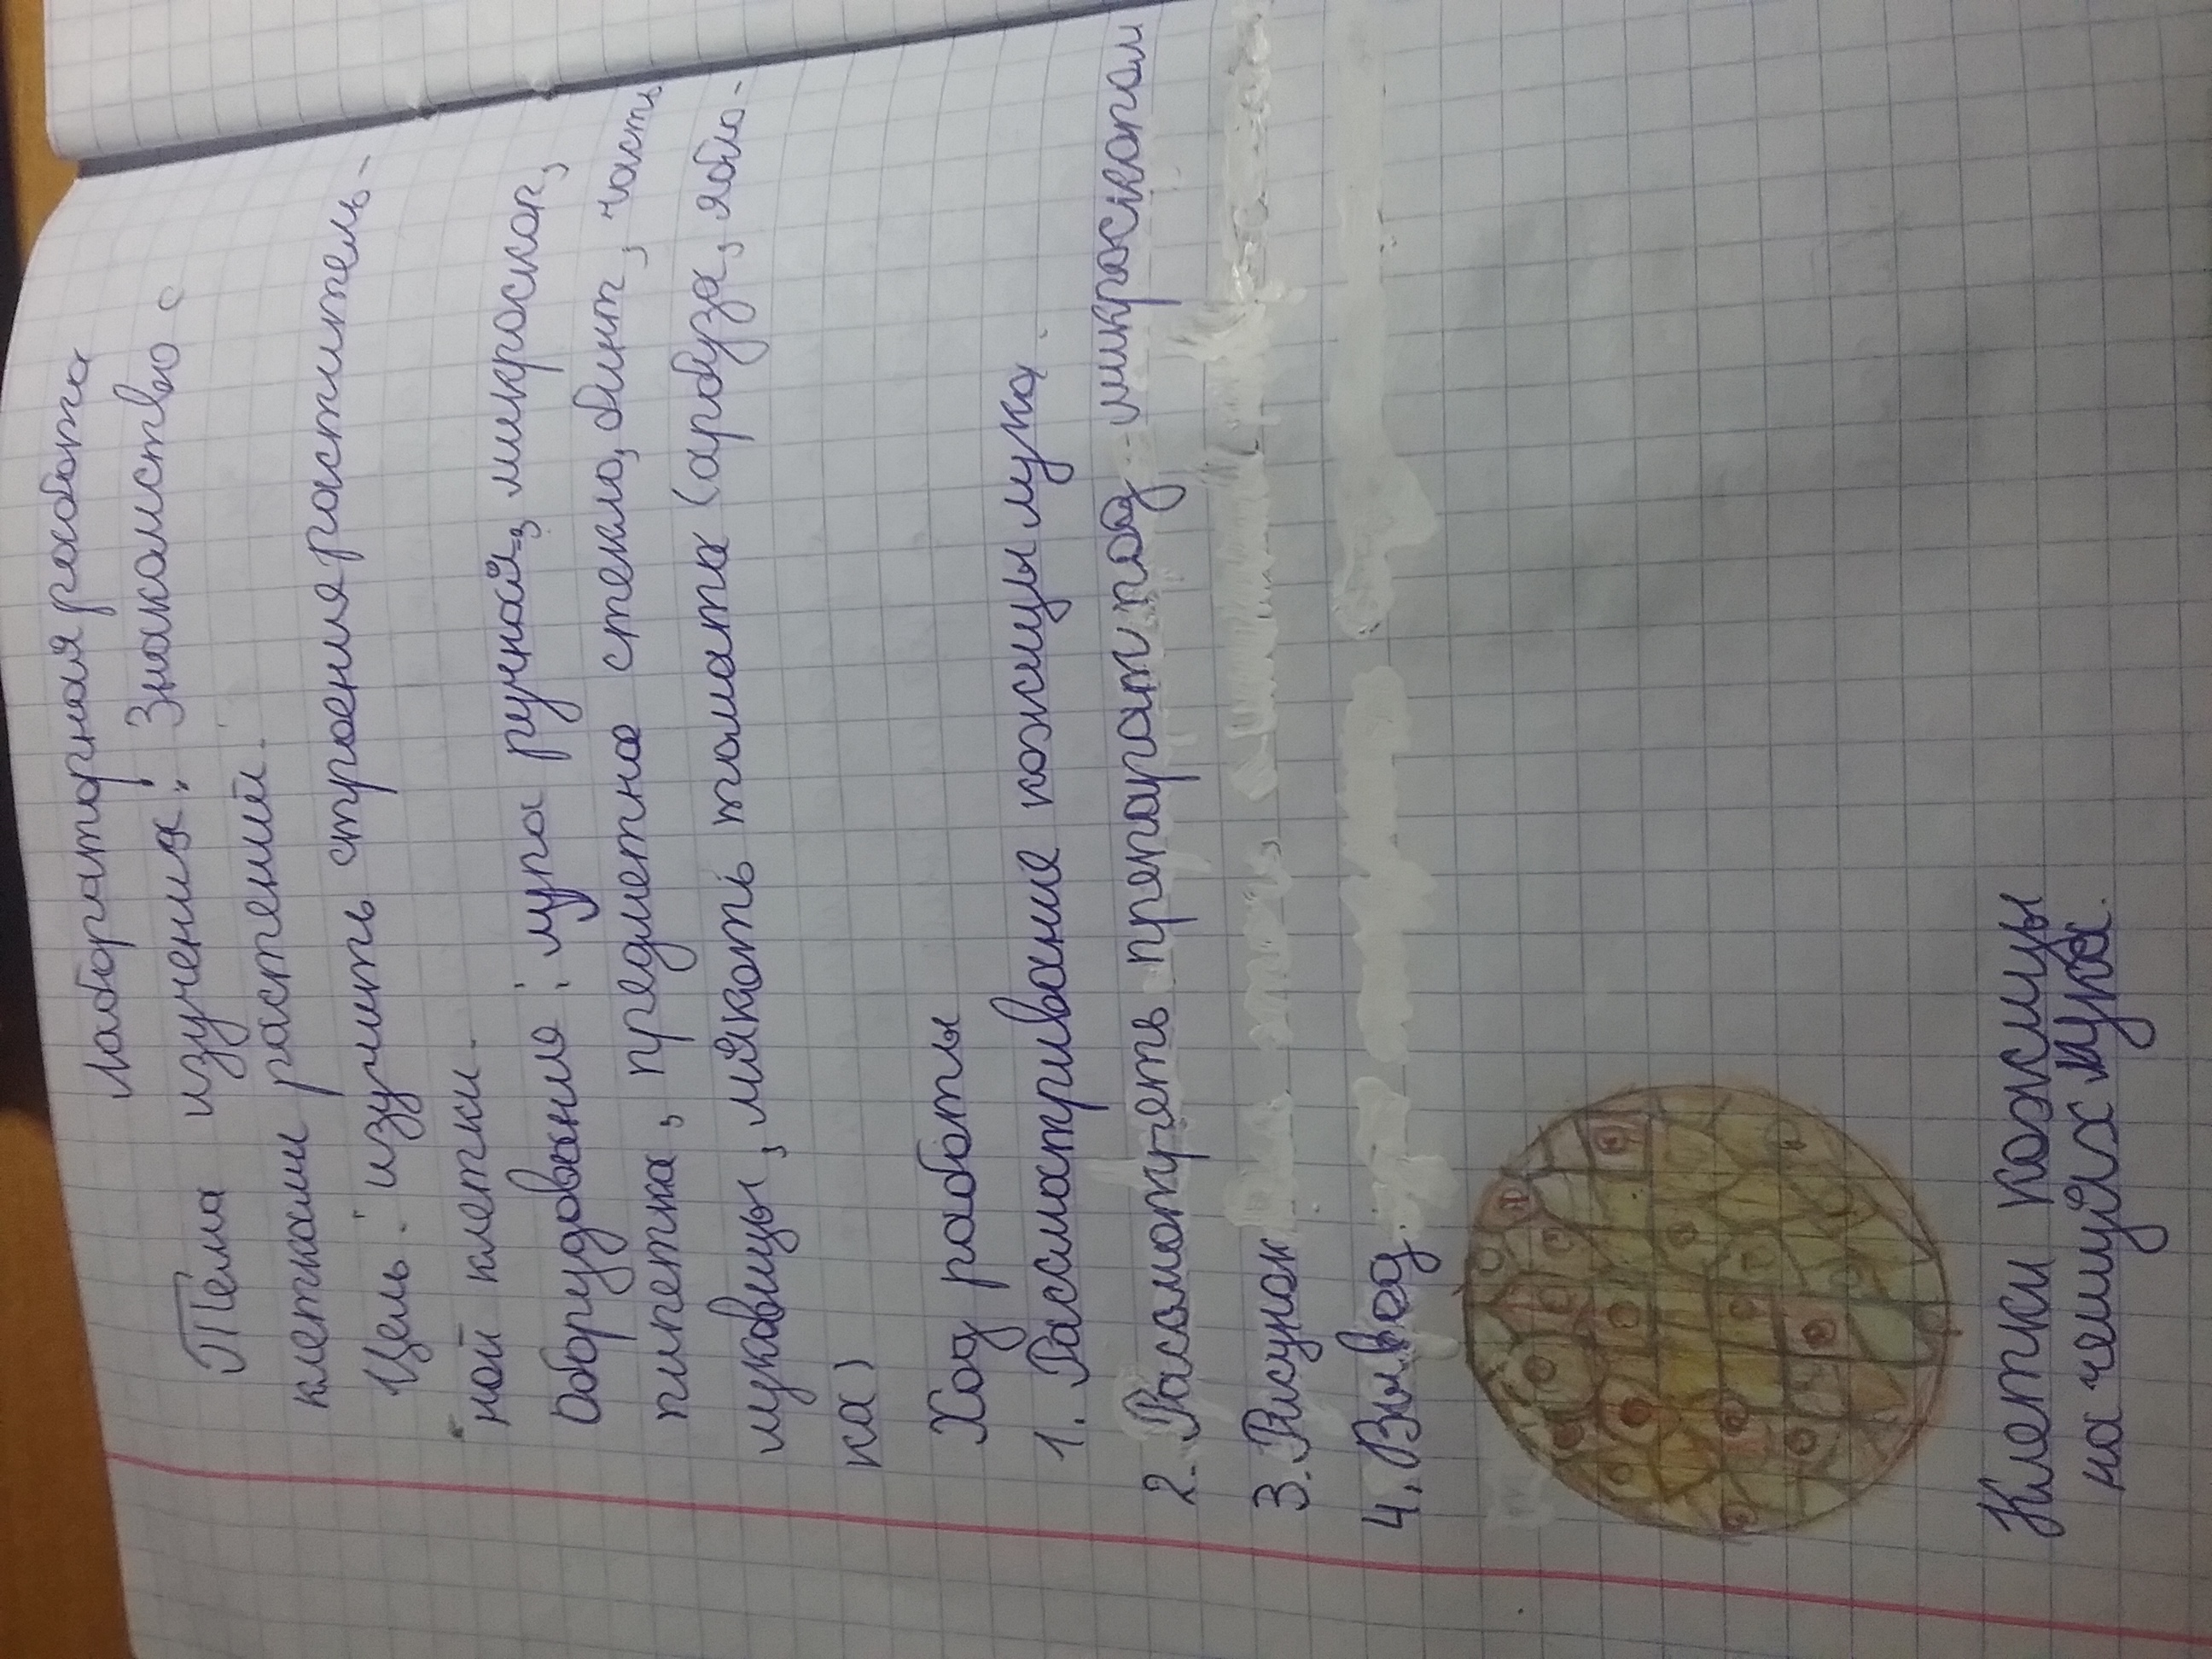 Лабораторная работа
Тема изучения: Знакомство с
клетками растений.
Цель: изучить строения раститель-
ной клетки.
Оборудование: лупа ручная, микроскоп,
пипетка, предметное стекло, бинт, часть
луковицы, мякоть томата (арбуза, ябло-
ка)
Ход работы
1. Рассматривание кожицы лука.
2. Рассмотреть препарат под микраскопом
3. Рисунок
4. Вывод
Клетки кожицы
на чешуйях лука.